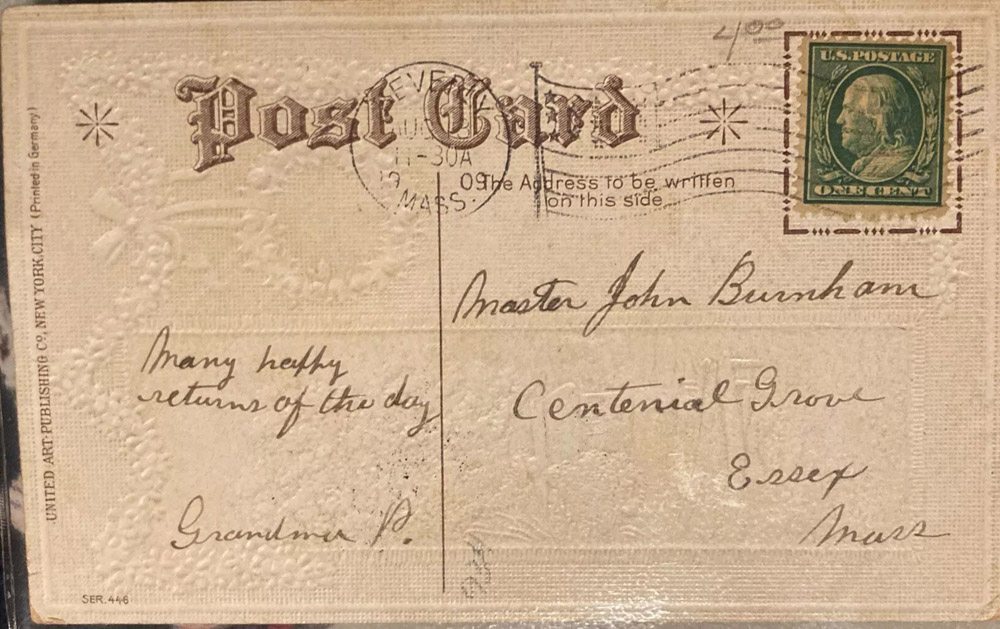 4 00
Post Card
BEVERLY
AUG
11-30A
19 09
MASS.
U.S. POSTAGE
ONE CENT
The Address to be written
on this side
Master John Burnham
Centenial Grove
Essex
Mass
Many happy
returns of the day
Grandma P.
UNITED ART PUBLISHING Co., NEW YORK.CITY (Printed in Germany)
SER. 446